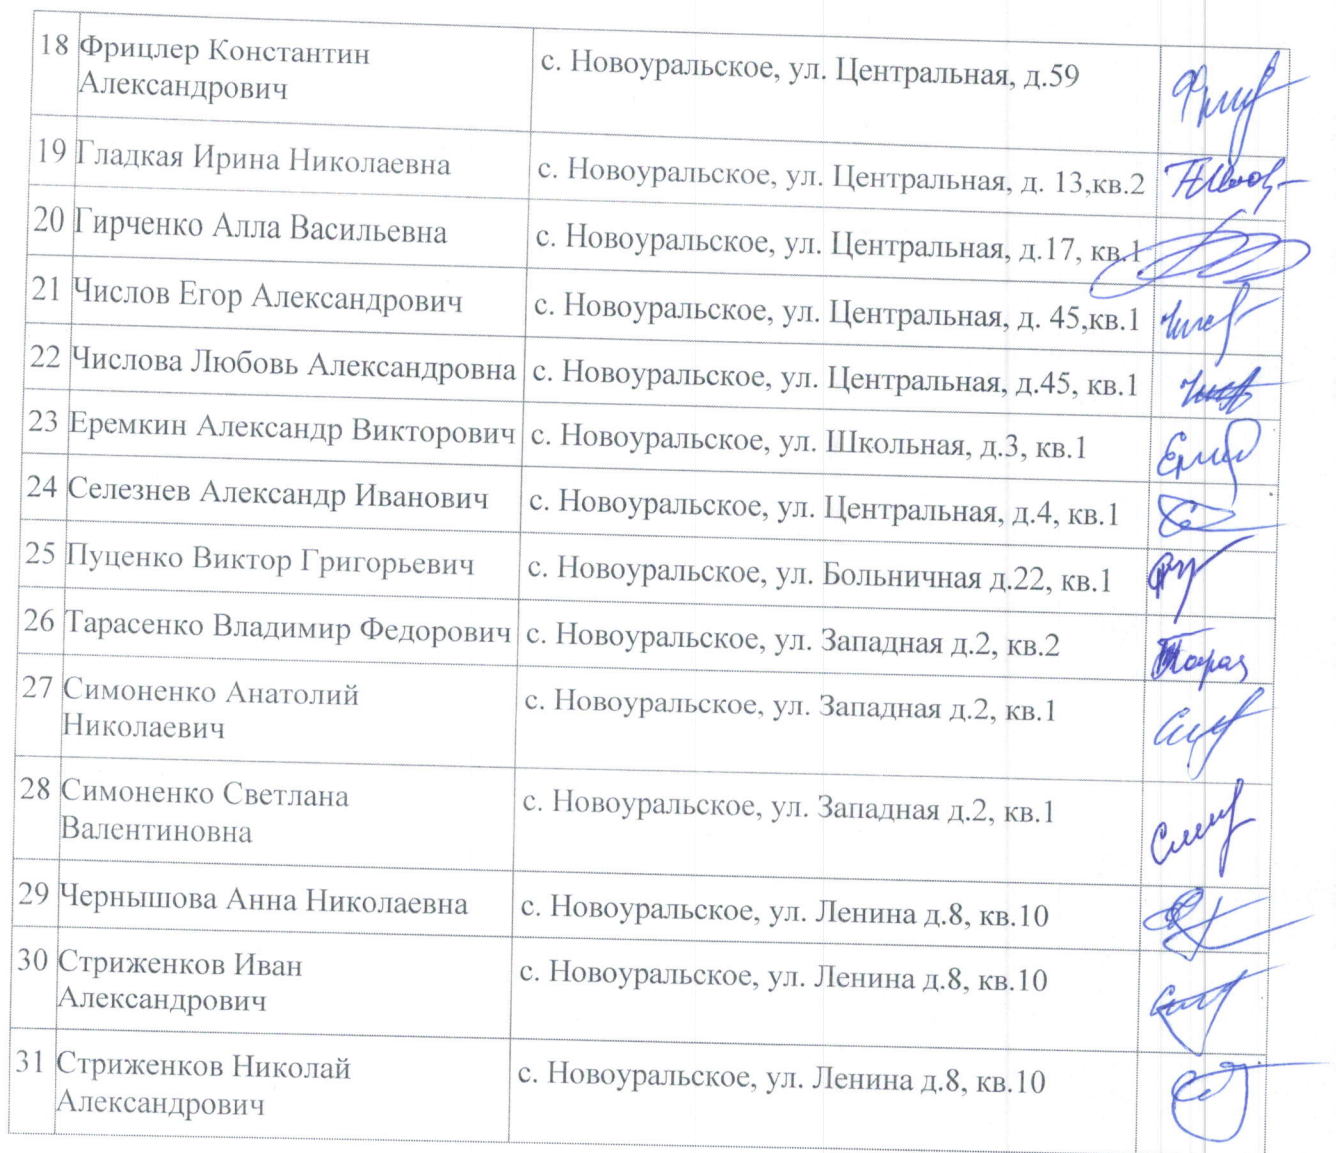 18 Фрицлер Константин с. Новоуральское, ул. Центральная, д.59
Александрович
19 Гладкая Ирина Николаевна с. Новоуральское, ул. Центральная, д. 13,кв.2
20 Гирченко Алла Васильевна с. Новоуральское, ул. Центральная, д.17, кв.1
21 Числов Егор Александрович с. Новоуральское, ул. Центральная, д. 45,кв.1
22 Числова Любовь Александровна с. Новоуральское, ул. Центральная, д.45, кв.1
23 Еремкин Александр Викторович с. Новоуральское, ул. Школьная, д.3, кв.1
24 Селезнев Александр Иванович с. Новоуральское, ул. Центральная, д.4, кв.1
25 Пуценко Виктор Григорьевич с. Новоуральское, ул. Больничная д.22, кв.1
26 Тарасенко Владимир Федорович с. Новоуральское, ул. Западная д.2, кв.2
27 Симоненко Анатолий с. Новоуральское, ул. Западная д.2, кв.1
Николаевич
28 Симоненко Светлана с. Новоуральское, ул. Западная д.2, кв.1
Валентиновна
29 Чернышова Анна Николаевна с. Новоуральское, ул. Ленина д.8, кв.10
30 Стриженков Иван с. Новоуральское, ул. Ленина д.8, кв.10
Александрович
31 Стриженков Николай с. Новоуральское, ул. Ленина д.8, кв.10
Александрович